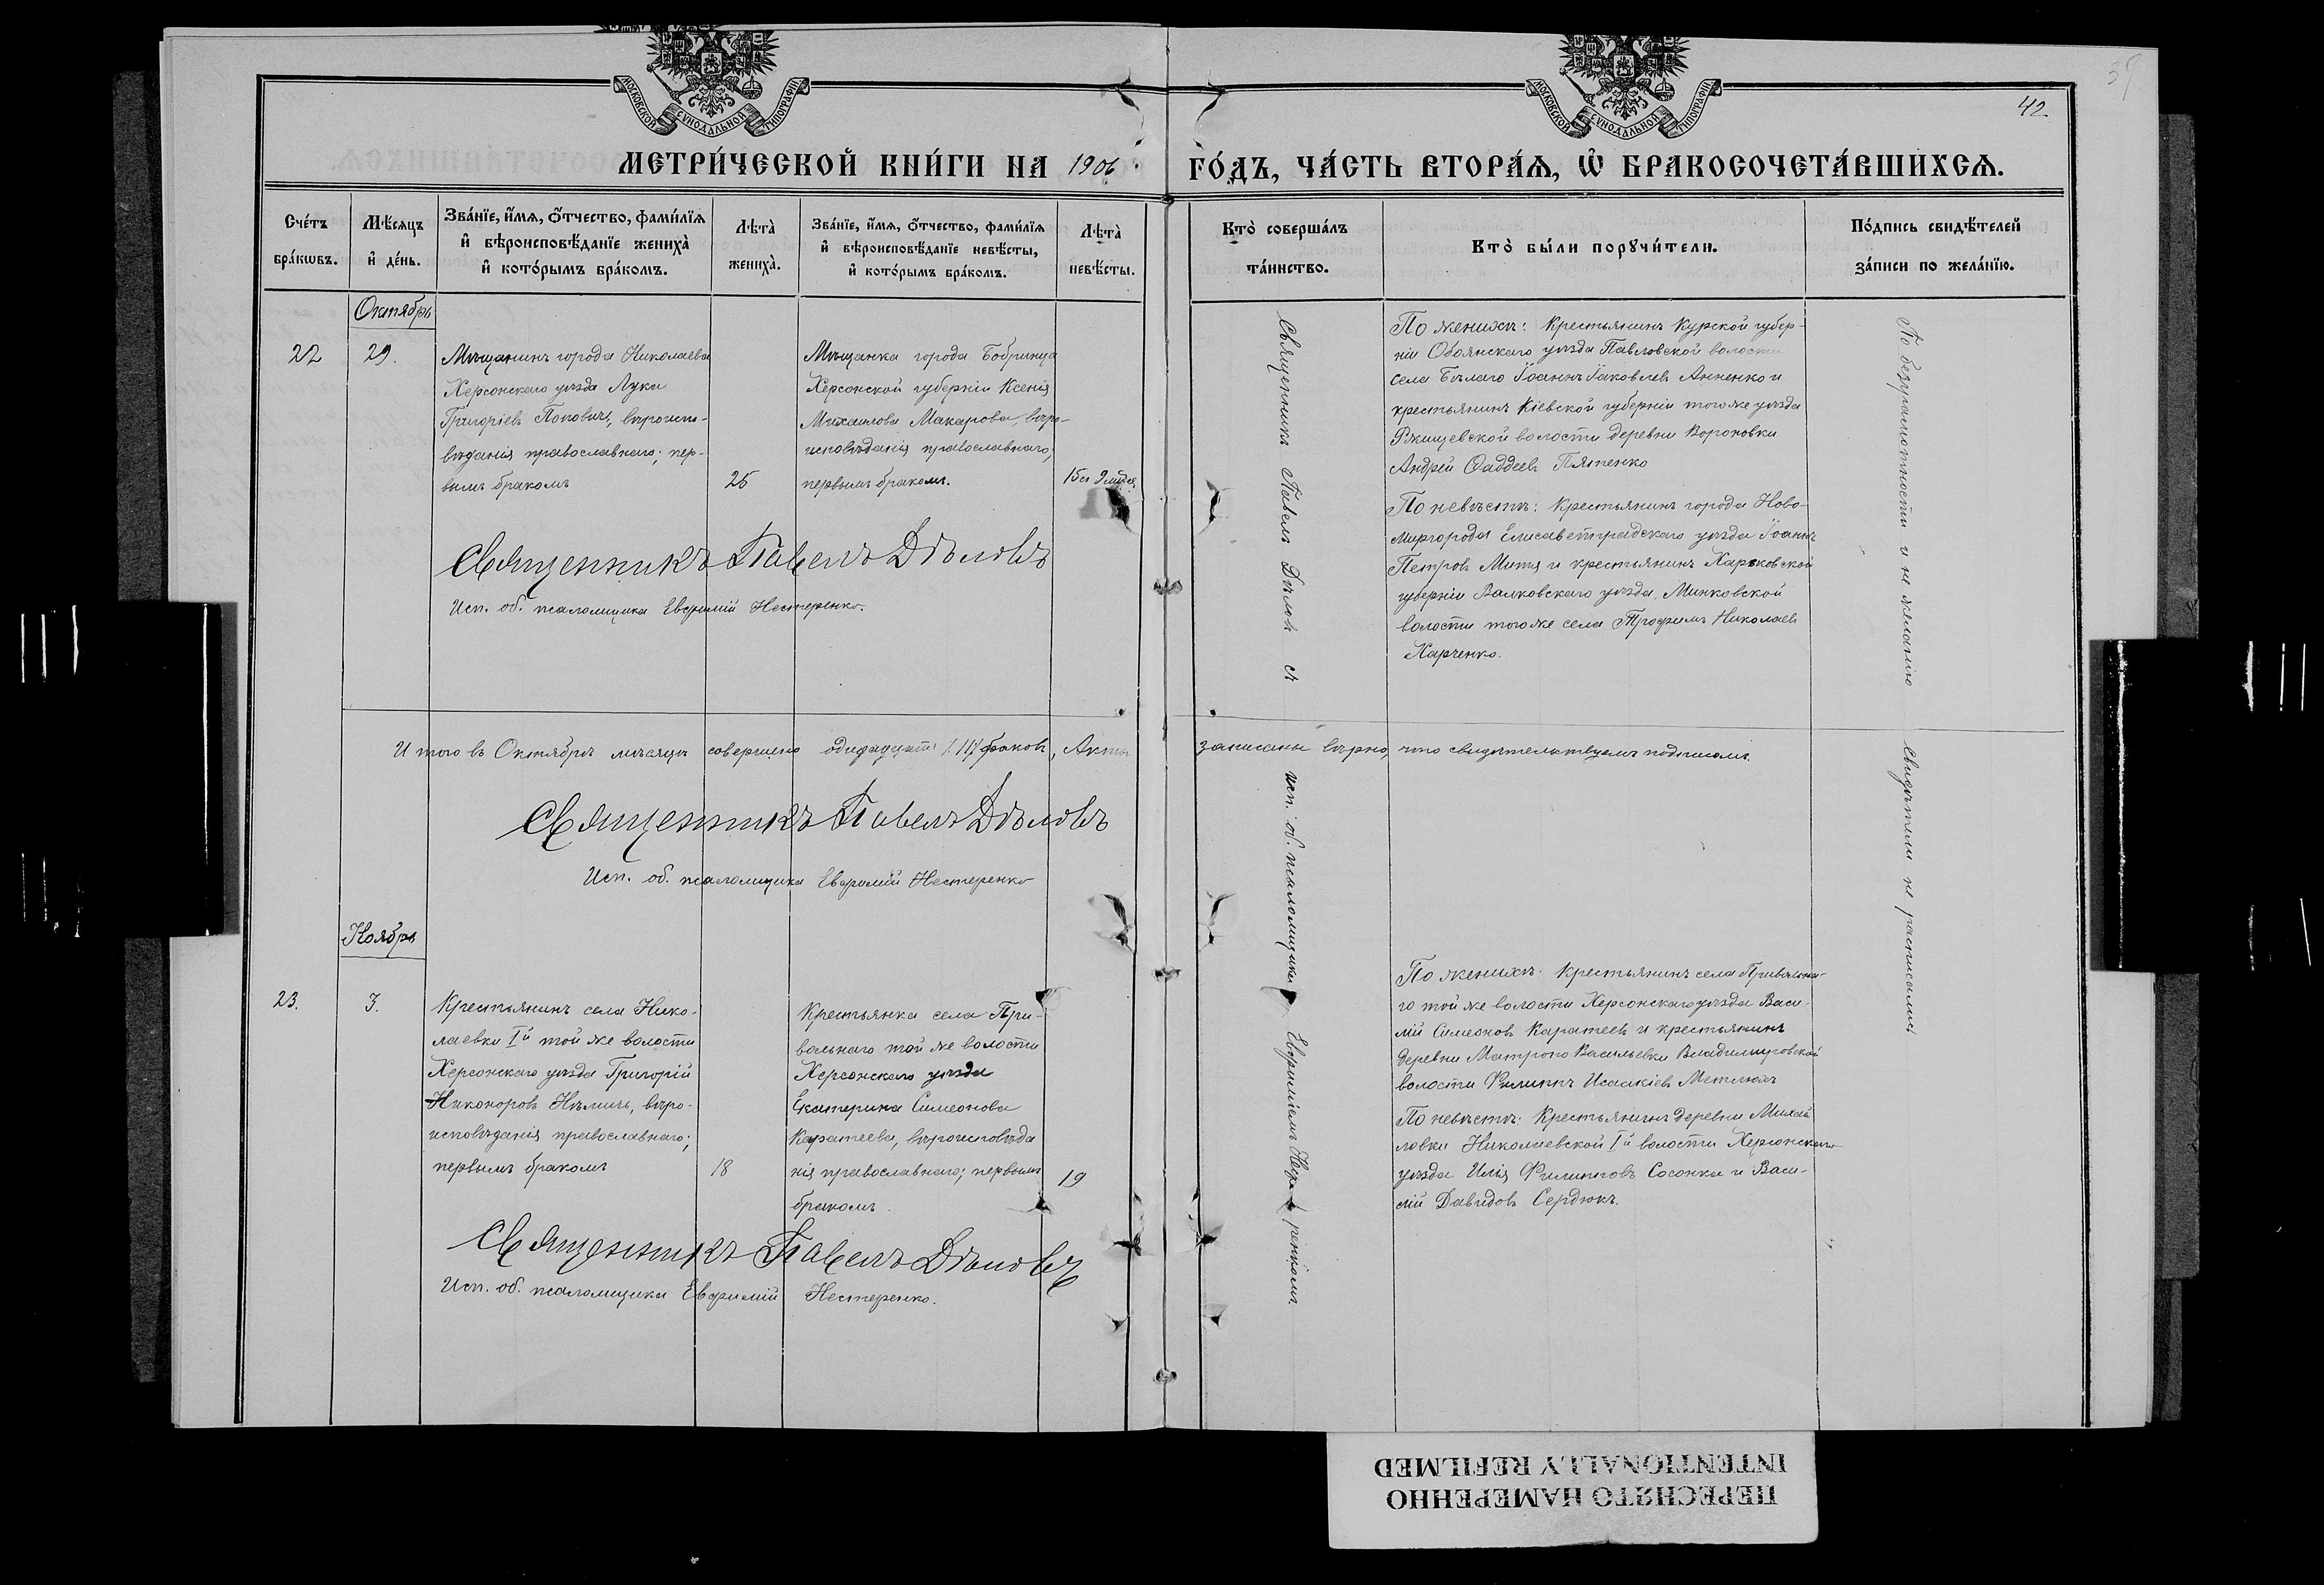 МОСКОВСКОЙ СѴНОДАЛЬНОЙ ТИПОГРАФІИ
МОСКОВСКОЙ СѴНОДАЛЬНОЙ ТИПОГРАФІИ
42
МЕТРИ́ЧЕСКОЙ КНИ́ГИ НА 1906 ГО́ДЪ, ЧА́СТЬ ВТОРА́Ѧ, Ѡ҆ БРАКОСОЧЕТА́ВШИХСѦ.
Сче́тъ бра́кѡвъ.
Мѣ́сѧцъ и҆ де́нь.
Зва́нїе, и҆́мѧ, ѻ҆́тчество, фами́лїѧ и҆ вѣроисповѣ́данїе жениха̀ и҆ кото́рымъ бра́комъ.
Лѣ́та̀ жениха̀.
Зва́нїе, и҆́мѧ, ѻ҆́тчество, фами́лїѧ и҆ вѣроисповѣ́данїе невѣ́сты, и҆ кото́рымъ бра́комъ.
Лѣ́та̀ невѣ́сты.
Кто̀ соверша́лъ та́инство.
Кто̀ бы́ли порꙋчи́тели.
По́дпись свидѣ́телей за́писи по жела́нїю.
Октябрь
22
29.
Мѣщанинъ города Николаева
Херсонскаго уѣзда Лука
Григоріевъ Поповичъ, вѣроиспо-
вѣданія православнаго; пер-
вымъ бракомъ
25
Мѣщанка города Бобринца
Херсонской губерніи Ксенія
Михаилова Макарова, вѣро-
исповѣданія православнаго,
первымъ бракомъ.
По женихѣ: Крестьянинъ Курской губер-
ніи Обоянскаго уѣзда Павловской волости
села Бѣлаго Іоаннъ Іаковлевъ Анненко и
крестьянинъ Кіевской губерніи того же уѣзда
Ржищевской волости деревни Вороновки
Андрей Фаддеевъ Пятенко
По невѣстѣ: Крестьянинъ города Ново-
миргорода Елисаветградскаго уѣзда Іоаннъ
Петровъ Митя и крестьянинъ Харьковской
губерніи Валковскаго уѣзда, Минковской
волости того же села Трофимъ Николаевъ
Харченко.
Священникъ Павелъ Дѣловъ
Исп. об. псаломщика Евфимій Нестеренко.
Священникъ Павелъ Дѣловъ съ исп. об. псаломщика Евфиміемъ
По безграмотности и не желанію свидѣтели не расписались
И того въ Октябрѣ мѣсяцѣ совершено одинадцать /11/ браковъ, Акты записаны вѣрно, что свидѣтельствуемъ подписомъ.
Священникъ Павелъ Дѣловъ
Исп. об. псаломщика Евфимій Нестеренко
Ноябрь
23.
3.
Крестьянинъ села Нико-
лаевки Iй той же волости
Херсонскаго уѣзда Григорій
Никоноровъ Нѣмичъ, вѣро-
исповѣданія православнаго;
первымъ бракомъ
18
Крестьянка села При-
вольнаго той же волости
Херсонскаго уѣзда
Екатерина Симеонова
Каратеева, вѣроисповѣда
нія православнаго; первымъ
бракомъ.
19
По женихѣ: Крестьянинъ села Привольна-
го той же волости Херсонскаго уѣзда Васи-
лій Симеоновъ Каратеевъ и крестьянинъ
деревни Матроно Васильевки Владимировской
волости Филиппъ Исаакіевъ Метлюхъ
По невѣстѣ: Крестьянинъ деревни Михай
ловки Николаевской Iй волости Херсонскаго
уѣзда Илія Филипповъ Сосонка и Васи-
лій Давидовъ Сердюкъ.
Священникъ Павелъ Дѣловъ
Исп. об. псаломщика Евфимій Нестеренко.
ПЕРЕСНЯТО НАМЕРЕННО
INTENTIONALLY REFILMED